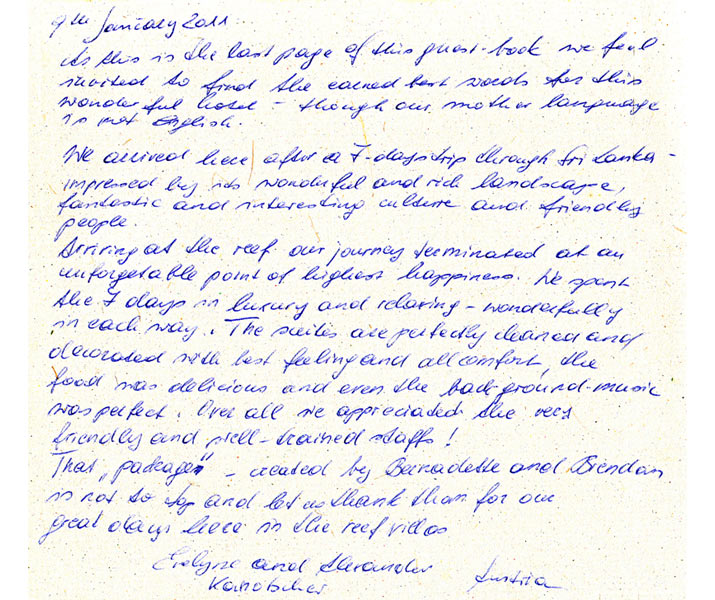 9th January 2011
As this is the last page of this guest-book we feel
invited to find the earned best words for this
wonderful hotel – though our mother language
is not English.
We arrived here after a 7-days trip through Sri Lanka –
impressed by its wonderful and rich landscape,
fantastic and interesting culture and friendly
people.
Arriving at the reef our journey terminated at an
unforgetable point of highest happiness. We spent
the 7 days in luxury and relaxing – wonderfully
in each way. The suites are perfectly cleaned and
decorated with best feeling and all comfort, the
food was delicious and even the back-ground-music
was perfect! Over all we appreciated the very
friendly and well-trained staffs!
That „package" – created by Bernadette and Brendan
is not to top and let us thank than for our
great days here in the reef villas
Evelyne and Alexander
Austria